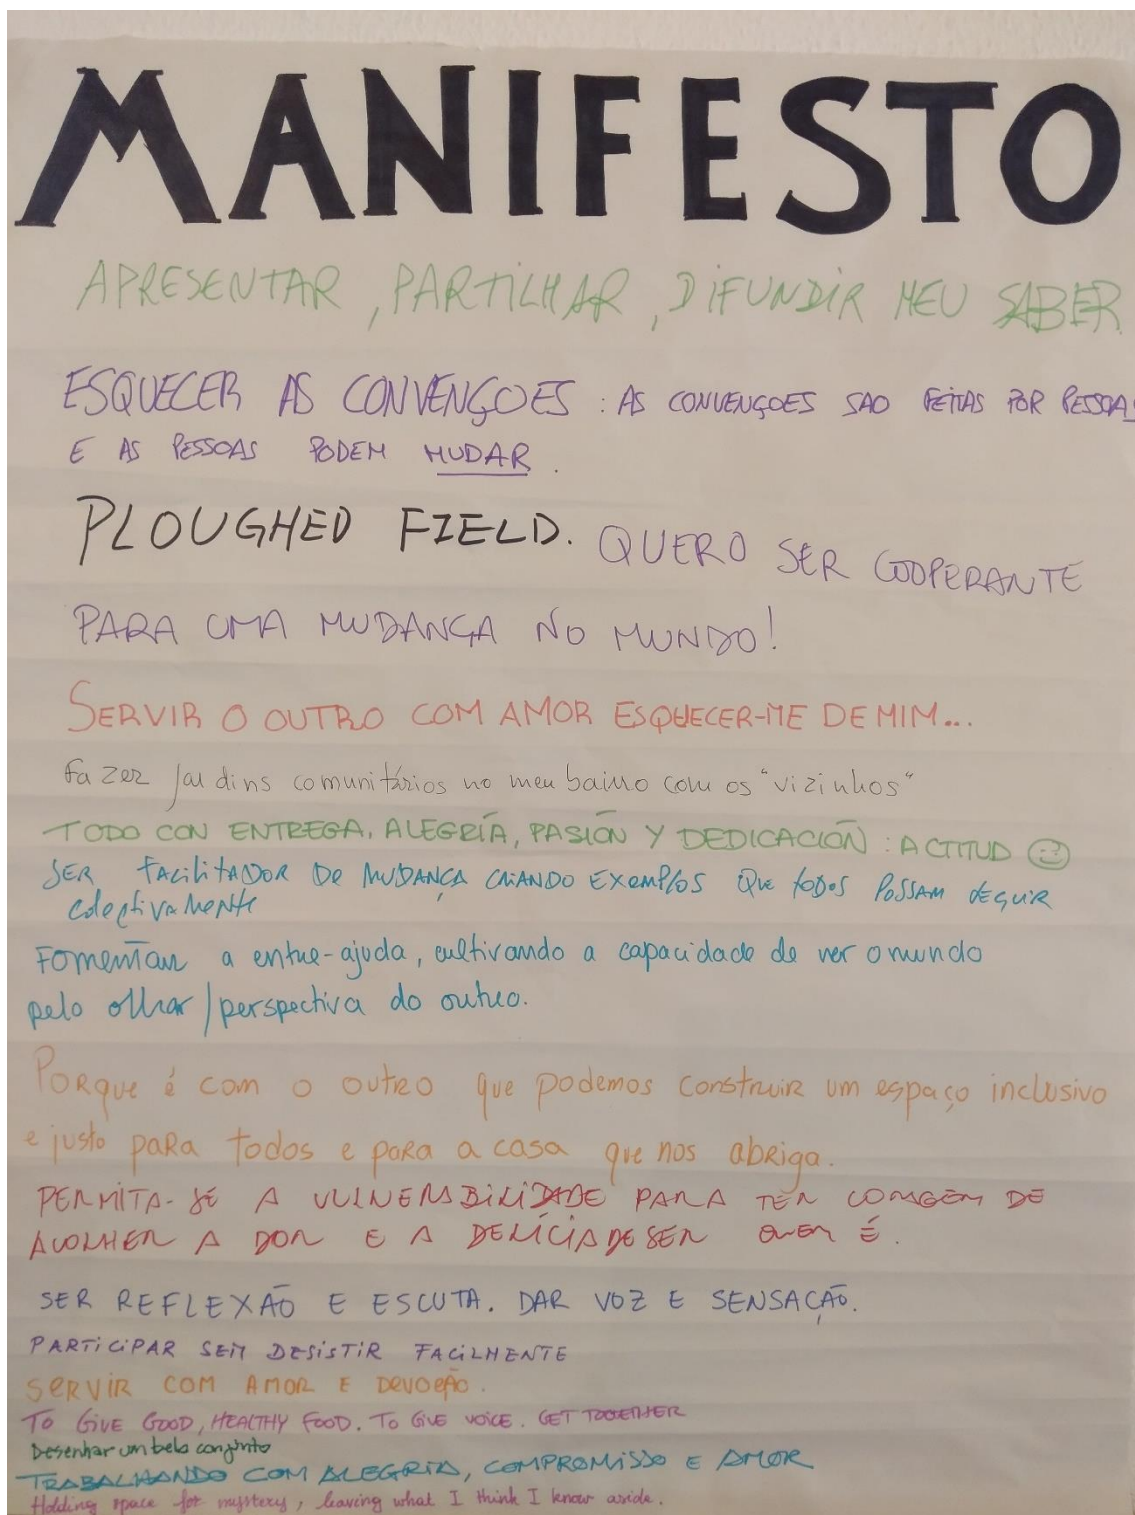 MANIFESTO
APRESENTAR, PARTILHAR, DIFUNDIR MEU SABER
ESQUECER AS CONVENÇOES : AS CONVENÇOES SAO FEITAS POR PESSOAS
E AS PESSOAS PODEM MUDAR.
PLOUGHED FIELD. QUERO SER COOPERANTE
PARA UMA MUDANÇA NO MUNDO!
SERVIR O OUTRO COM AMOR ESQUECER-ME DE MIM...
Fazer jardins comunitários no meu bairro com os "vizinhos"
TODO CON ENTREGA, ALEGRÍA, PASIÓN Y DEDICACIÓN : ACTITUD
SER FACILITADOR DE MUDANÇA CRIANDO EXEMPLOS QUE todos POSSAM SEGUIR
colectivamente
Fomentar a entre-ajuda, cultivando a capacidade de ver o mundo
pelo olhar/perspectiva do outro.
Porque é com o outro que podemos construir um espaço inclusivo
e justo para todos e para a casa que nos abriga.
PERMITA-SE A VULNERABILIDADE PARA TER CORAGEM DE
ACOLHER A DOR E A DELÍCIA DE SER QUEM É.
SER REFLEXÃO E ESCUTA. DAR VOZ E SENSAÇÃO.
PARTICIPAR SEM DESISTIR FACILMENTE
SERVIR COM AMOR E DEVOÇÃO.
TO GIVE GOOD, HEALTHY FOOD. TO GIVE VOICE. GET TOGETHER
Desenhar um belo conjunto
TRABALHANDO COM ALEGRIA, COMPROMISSO E AMOR
Holding space for mystery, leaving what I think I know aside.